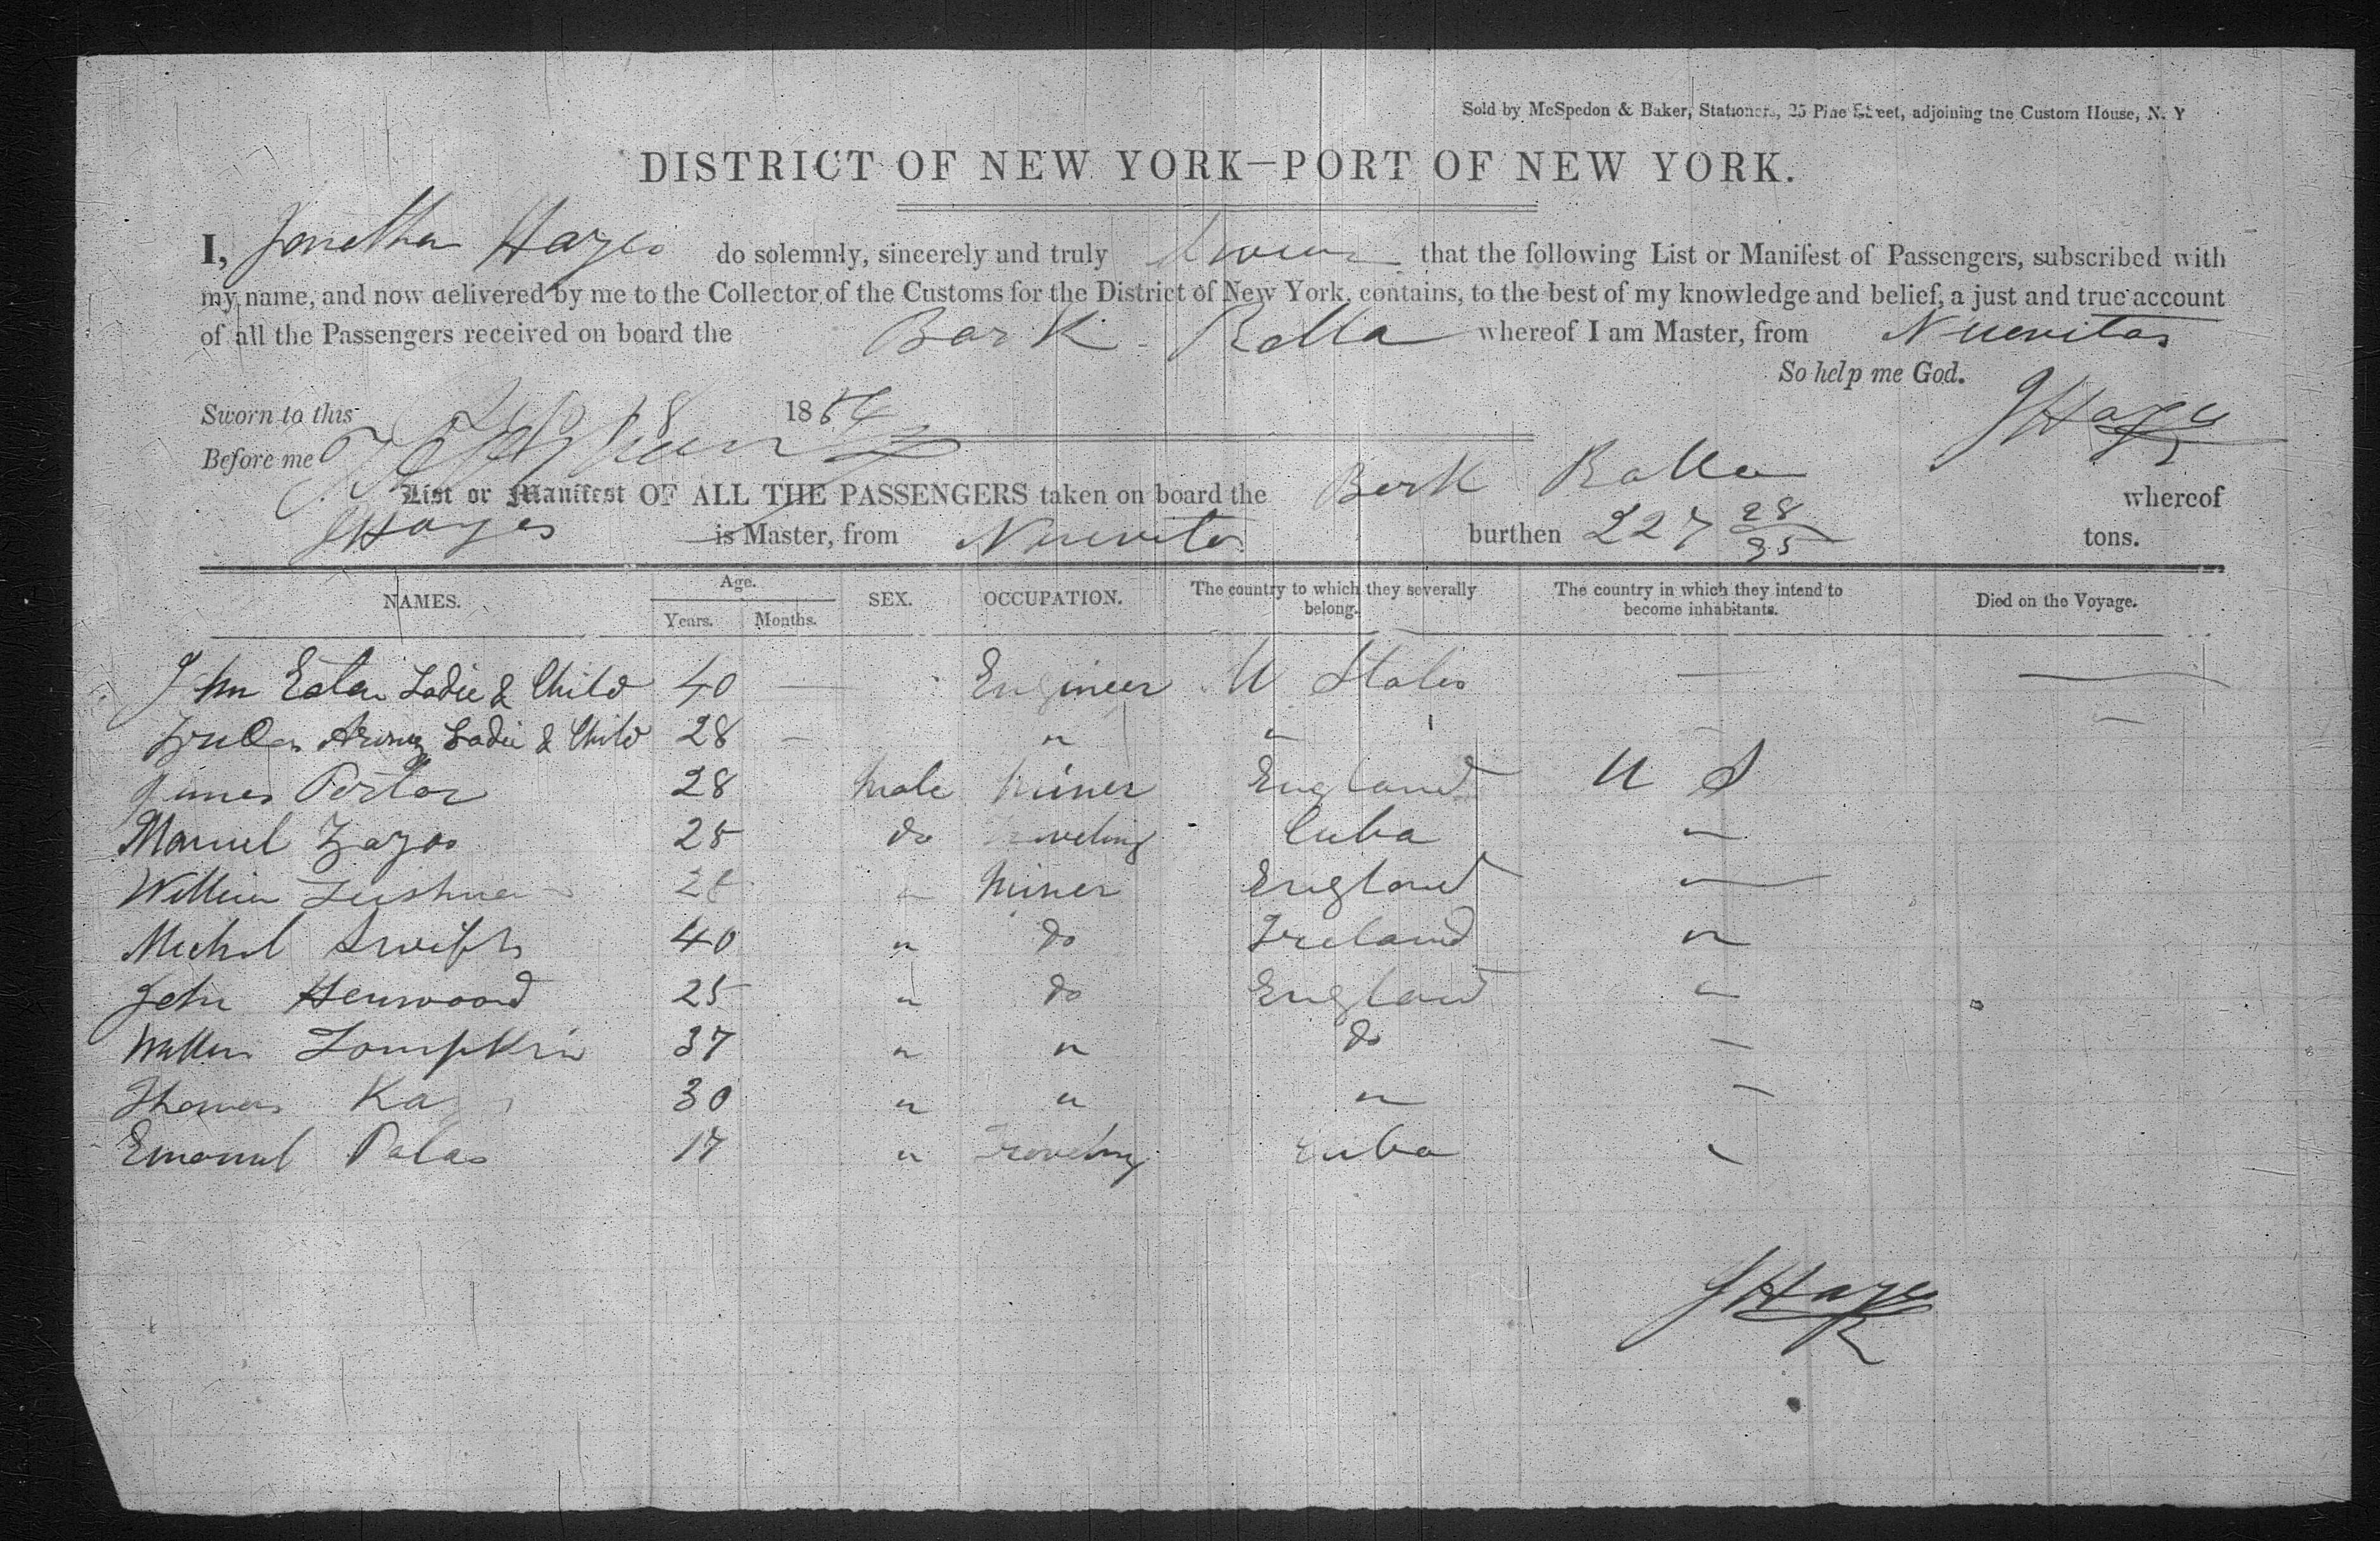 Sold by McSpedon & Baker, Stationers, 25 Pine Street, adjoining the Custom House, N. Y
DISTRICT OF NEW YORK—PORT OF NEW YORK.
I, Jonathan Hayes do solemnly, sincerely and truly swear that the following List or Manifest of Passengers, subscribed with
my name, and now delivered by me to the Collector of the Customs for the District of New York, contains, to the best of my knowledge and belief, a just and true account
of all the Passengers received on board the Bark Rolla whereof I am Master, from Nuevitas
So help me God.
Sworn to this 8 1854 J Hayes
Before me
List or Manifest OF ALL THE PASSENGERS taken on board the Bark Rolla whereof
J Hayes is Master, from Nuevitas burthen 227 28/95 tons.
NAMES. Age. Years. Months. SEX. OCCUPATION. The country to which they severally belong. The country in which they intend to become inhabitants. Died on the Voyage.
John Eaton Ladie & Child 40 — Engineer U States — —
Ladie & Child 28 — " " —
James Porter 28 Male Miner England U S
Manuel Zayas 25 do Traveling Cuba "
William 28 " Miner England "
Michel Swift 40 " do Ireland "
John Henwood 25 " do England "
Tompkin 37 " " do "
Thomas 30 " " " "
Emanuel Palas 17 " Traveling Cuba "
J Hayes